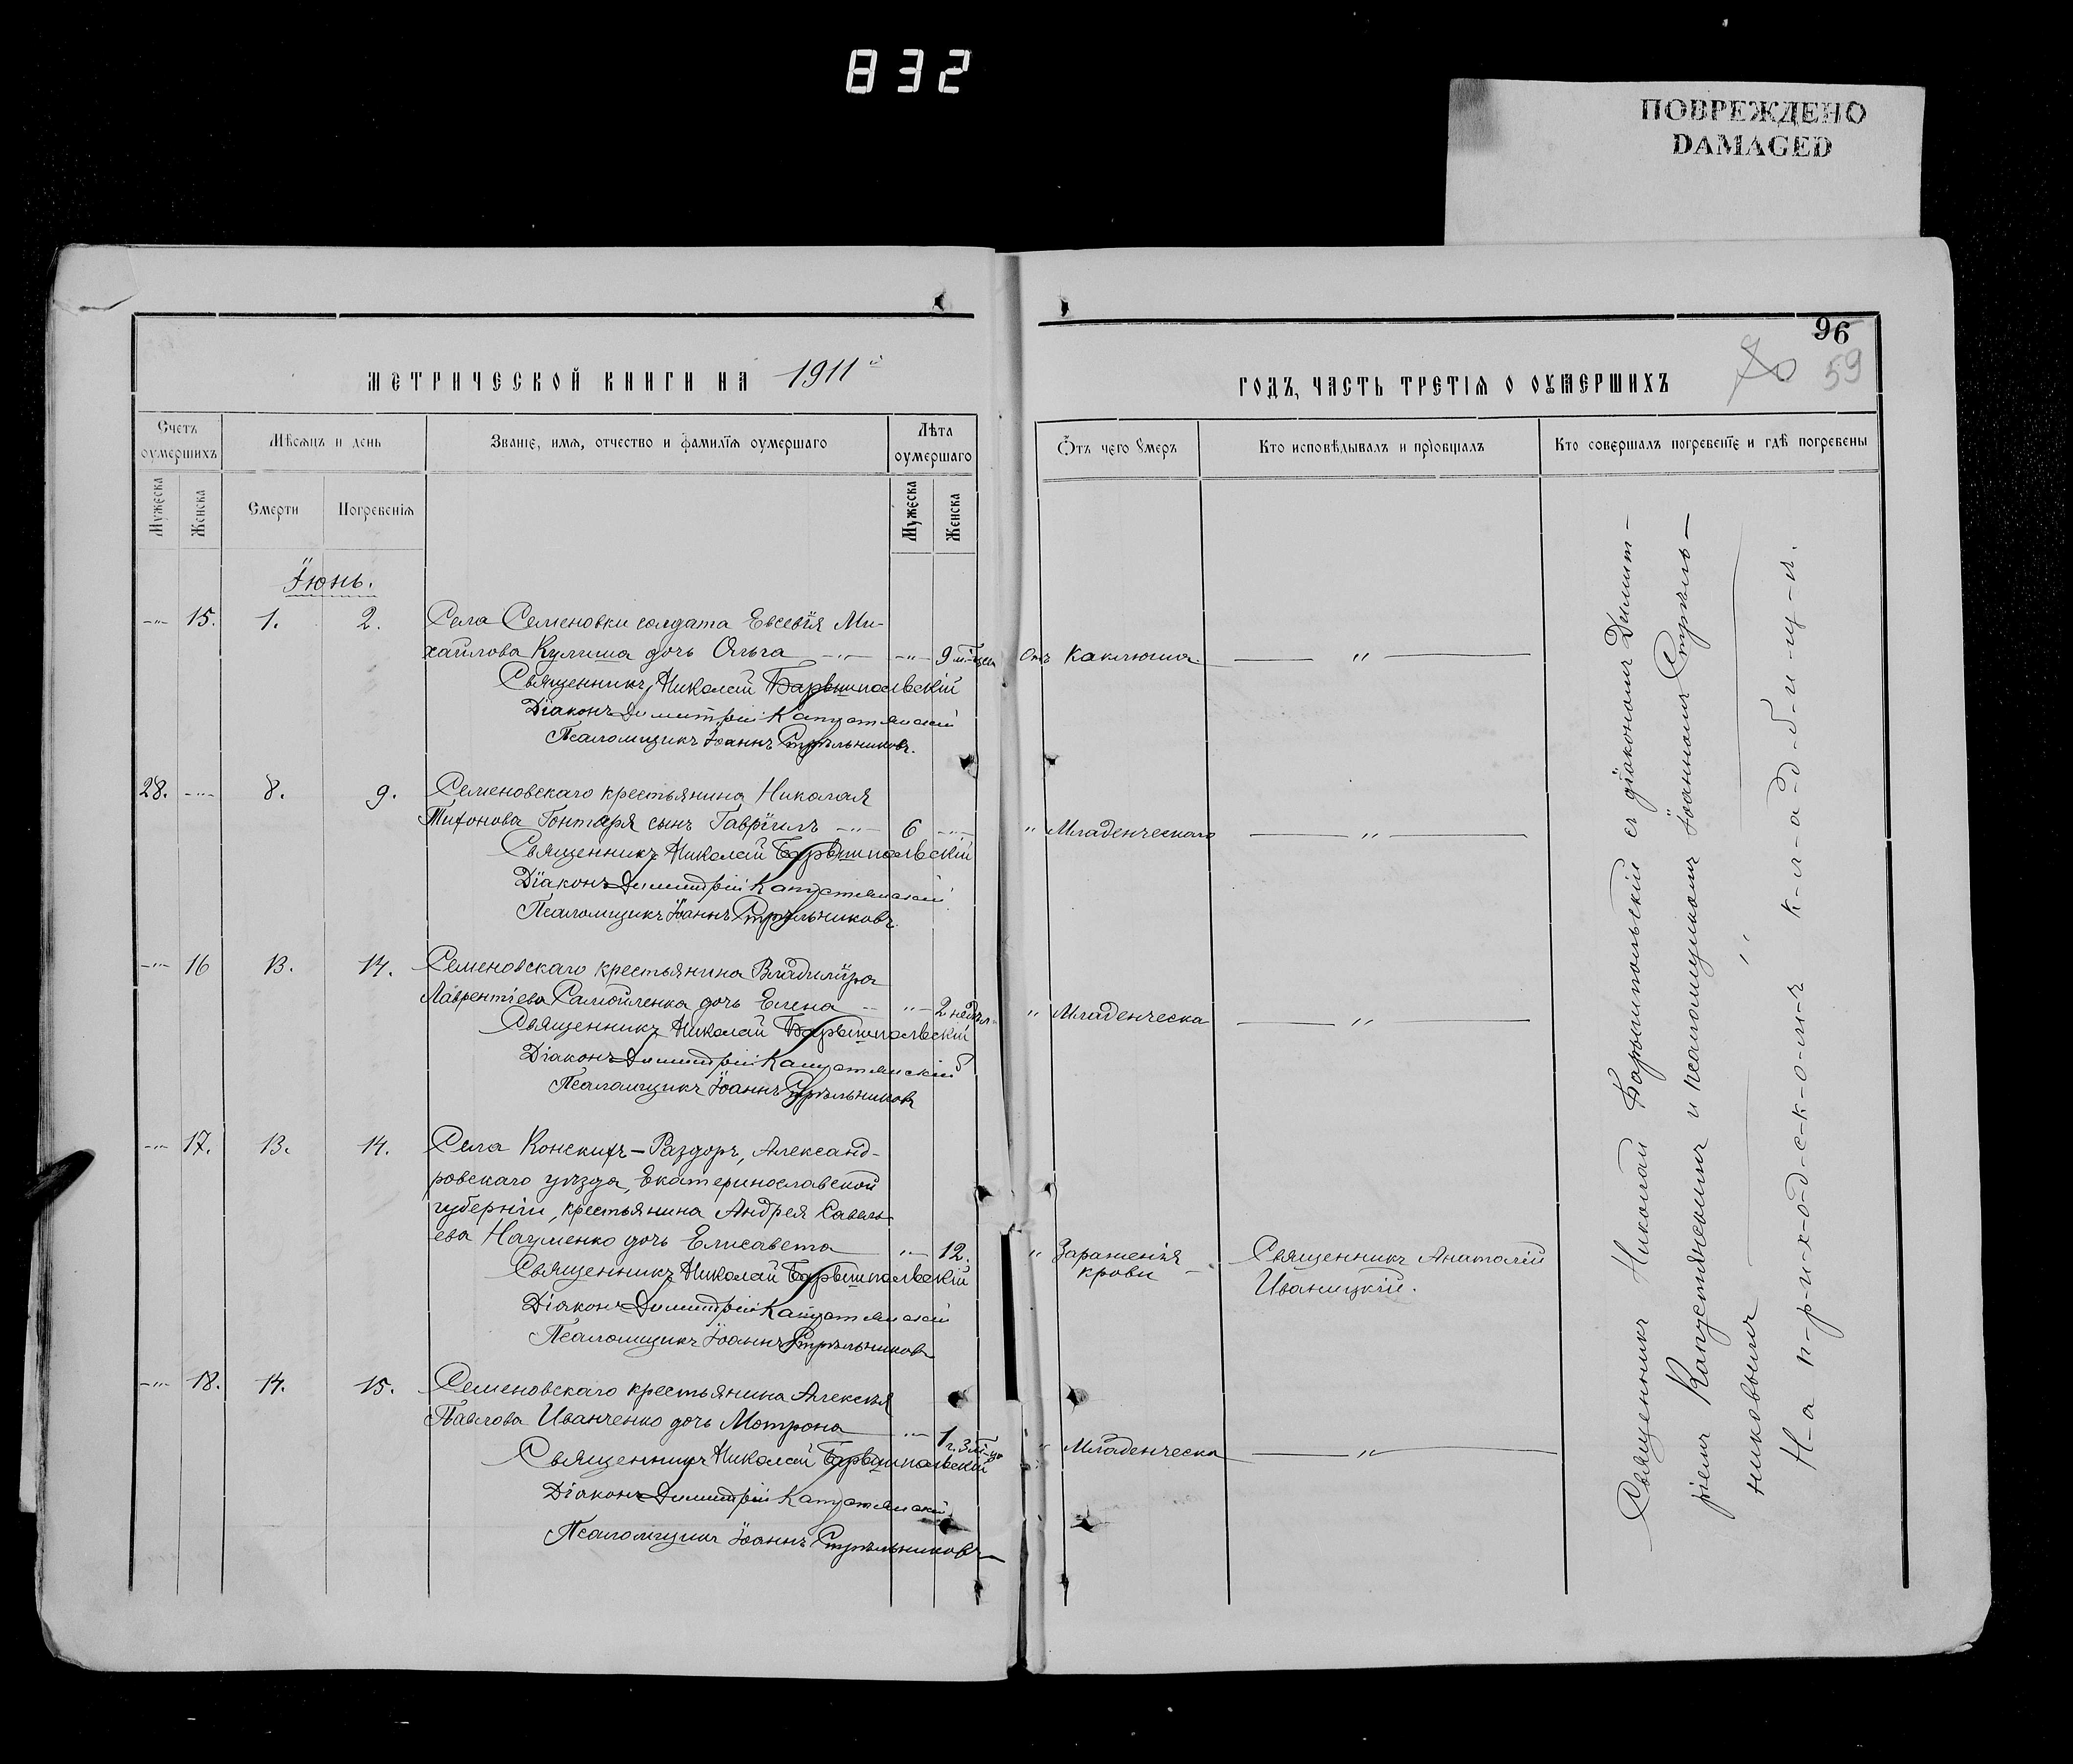 832
ПОВРЕЖДЕНО
DAMAGED
96
59
МЕТРИЧЕСКОЙ КНИГИ НА 1911й
ГОДЪ, ЧАСТЬ ТРЕТІѦ О ОУМЕРШИХЪ
Счетъ оумершихъ
Мѣсяцъ и день
Званіе, имя, отчество и фамилія оумершаго
Лѣта оумершаго
Мужеска
Женска
Смерти
Погребенія
Мужеска
Женска
Ѿтъ чего оумеръ
Кто исповѣдывалъ и пріобщалъ
Кто совершалъ погребеніе и гдѣ погребены
Іюнь.
-"- 15. 1. 2. Села Семеновки солдата Евсевія Ми-
хайлова Кулиша дочь Ольга -"- -"- 9 м-цев Отъ Каклюша. — " —
Священникъ Николай Барышпольскій
Діаконъ Димитрій Капустянскій
Псаломщикъ Іоаннъ Стрѣльниковъ.
28. -"- 8. 9. Семеновскаго крестьянина Николая
Тихонова Гонтаря сынъ Гавріилъ -"- 6 -"- " Младенческаго — " —
Священникъ Николай Барышпольскій
Діаконъ Димитрій Капустянскій
Псаломщикъ Іоаннъ Стрѣльниковъ.
-"- 16 13. 14. Семеновскаго крестьянина Владиміра
Лаврентіева Самойленка дочь Елена -"- 2 недѣл- " Младенческа — " —
Священникъ Николай Барышпольскій
Діаконъ Димитрій Капустянскій
Псаломщикъ Іоаннъ Стрѣльниковъ
-"- 17. 13. 14. Села Конскихъ-Раздоръ, Александ-
ровскаго уѣзда, Екатеринославской
губерніи, крестьянина Андрея Савель-
ева Науменко дочь Елисавета -"- 12. " Зараженія крови - Священникъ Анатолій
Иваницкій.
Священникъ Николай Барышпольскій
Діаконъ Димитрій Капустянскій
Псаломщикъ Іоаннъ Стрѣльниковъ
-"- 18. 14. 15. Семеновскаго крестьянина Алексѣя
Павлова Иванченко дочь Мотрона -"- 1 г. 3 м-ца " Младенческа — " —
Священникъ Николай Барышпольскій
Діаконъ Димитрій Капустянскій
Псаломщикъ Іоаннъ Стрѣльниковъ
Священникъ Николай Барышпольскій съ діакономъ Димит-
ріемъ Капустянскимъ и псаломщикомъ Іоанномъ Стрѣль-
никовымъ — " —
Н-а п-р-и-х-о-д-с-к-о-м-ъ к-л-а-д-б-и-щ-и.